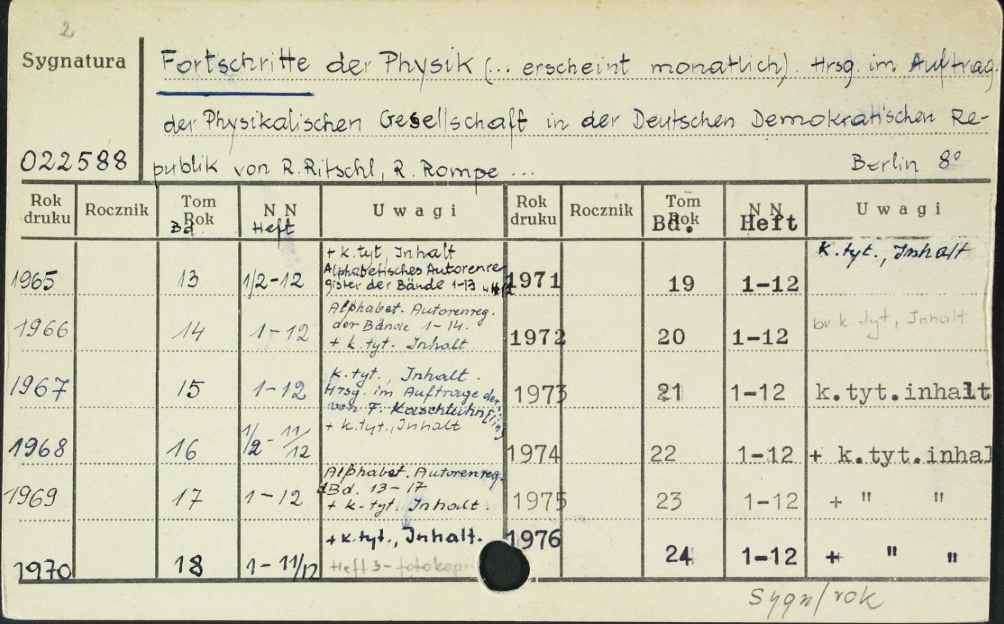 2
Sygnatura
Fortschritte der Physik (... erscheint monatlich). Hrsg. im Auftrag
der Physikalischen Gesellschaft in der Deutschen Demokratischen Re-
022588
publik von R. Ritschl, R. Rompe ...
Berlin 8°
Rok druku Rocznik Tom Rok Bd. N N Heft Uwagi Rok druku Rocznik Tom Rok Bd. N N Heft Uwagi
1965 13 1/2-12 + k. tyt, Inhalt
Alphabetisches Autorenre
gister der Bände 1-13
1971 19 1-12 k. tyt., Inhalt
1966 14 1-12 Alphabet. Autorenreg.
der Bände 1-14.
+ k. tyt. Inhalt
1972 20 1-12 k tyt, Inhalt
1967 15 1-12 k. tyt., Inhalt.
Hrsg. im Auftrage der
von F.
1973 21 1-12 k.tyt.inhalt
1968 16 1/2-11/12 + k. tyt., Inhalt
1974 22 1-12 + k.tyt.inhal
1969 17 1-12 Alphabet. Autorenreg.
Bd. 13-17
+ k. tyt. Inhalt.
1975 23 1-12 + " "
1970 18 1-11/12 + k. tyt., Inhalt.
Heft 3-
1976 24 1-12 + " "
Sygn/rok